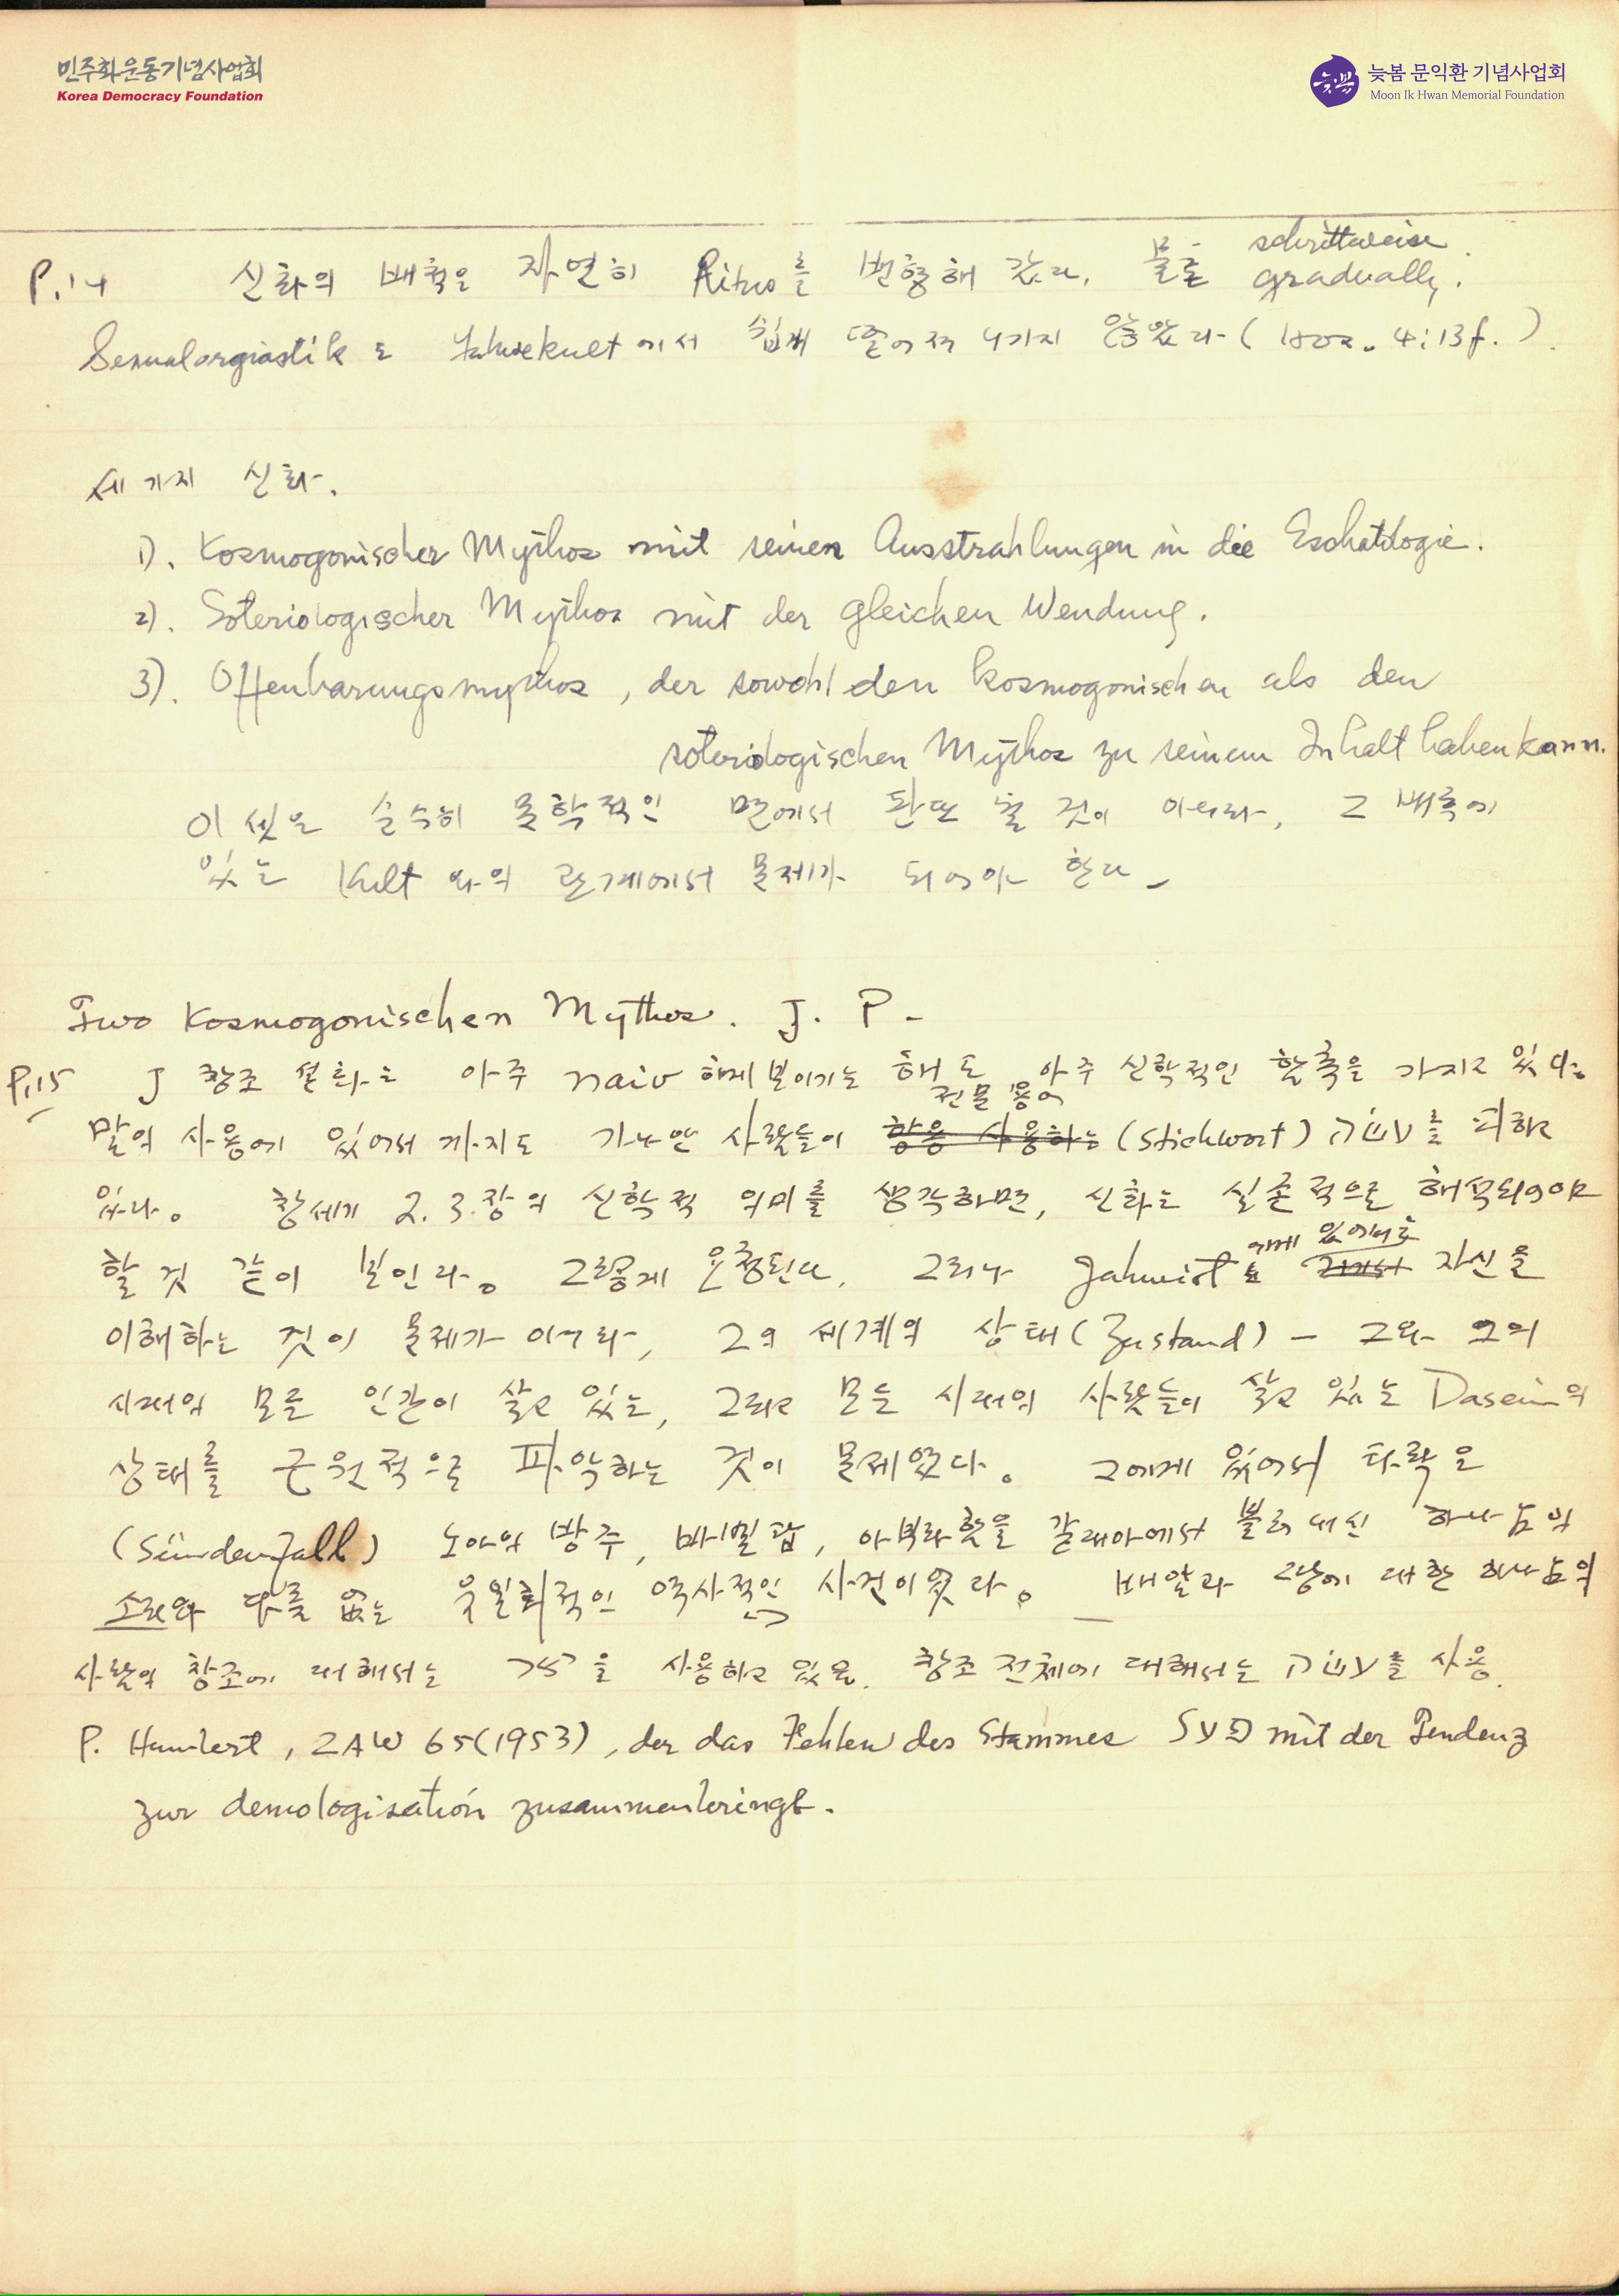 민주화운동기념사업회
Korea Democracy Foundation
늦봄
늦봄 문익환 기념사업회
Moon Ik Hwan Memorial Foundation
schrittweise
P.14 신화의 배척은 자연히 Ritus를 변형해 갔다. 물론 gradually.
Sexualorgiastik도 Jahwekult에서 쉽게 떨어져 나가지 않았다 (Hos. 4:13f.).
세 가지 신화.
1). Kosmogonischer Mythos mit seinen Ausstrahlungen in die Eschatologie.
2). Soteriologischer Mythos mit der gleichen Wendung.
3). Offenbarungsmythos, der sowohl den kosmogonischen als den
soteriologischen Mythos zu seinem Inhalt haben kann.
이 셋은 순수히 문학적인 면에서 판단 될 것이 아니라, 그 배후에
있는 Kult 와의 관계에서 문제가 되어야 한다.
Two Kosmogonischen Mythos. J. P.
P.15 J 창조 설화는 아주 naiv 하게 보이기는 해도 아주 신학적인 함축을 가지고 있다.
전문 용어
말의 사용에 있어서 까지도 가나안 사람들이 항용 사용하는 (Stichwort) קנה를 피하고
있다. 창세기 2.3.장의 신학적 의미를 생각하면, 신화는 실존적으로 해석되어야
에게 있어서도
할 것 같이 보인다. 그렇게 요청된다. 그러나 Jahwist 자신을
이해하는 것이 문제가 아니라, 그의 세계의 상태 (Zustand) - 그와 그의
시대의 모든 인간이 살고 있는, 그리고 모든 시대의 사람들이 살고 있는 Dasein의
상태를 근원적으로 파악하는 것이 문제였다. 그에게 있어서 타락은
(Sündenfall) 노아의 방주, 바벨탑, 아브라함을 갈대아에서 불러 내신 하나님의
소리와 다를 없는 유일회적인 역사적인 사건이었다. 배암과 땅에 대한 하나님의
사람의 창조에 대해서는 יצר을 사용하고 있음. 창조 전체에 대해서는 עשה를 사용.
P. Humbert, ZAW 65(1953), der das Fehlen des Stammes פעל mit der Tendenz
zur demologisation zusammenbringt.